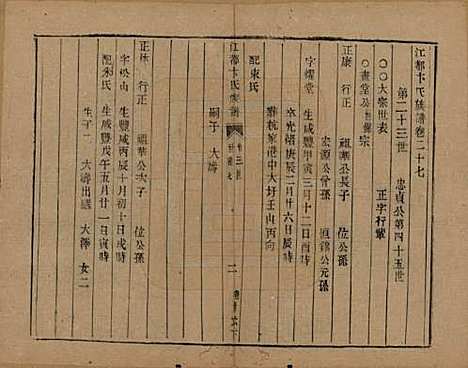 江都卞氏族譜卷二十七
第二十三世 忠貞公第四十五世
○○大宗世表 正字行輩
○畫堂公 宗
正康 行正 祖華公長子 位公孫
宏源公曾孫 恒錦公元孫
字燿堂 生咸豐甲寅三月十二日酉時
卒光緒庚辰二月廿六日辰時
葬杭家港中大圩壬山丙向
配朱氏
嗣子 大濤
江都卞氏族譜
二
正林 行正 祖華公次子 位公孫
字松山 生咸豐丙辰十月初十日戌時
配朱氏 生咸豐戊午五月廿一日寅時
生子二 大濤出嗣 大澤 女二